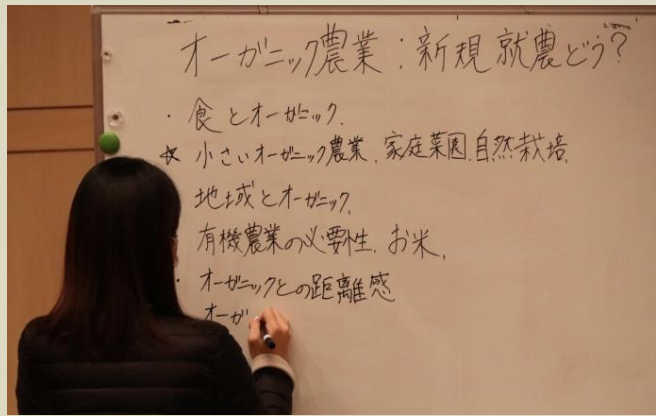 オーガニック農業:新規就農どう?
・食とオーガニック.
☆小さいオーガニック農業.家庭菜園.自然栽培.
地域とオーガニック.
有機農業の必要性.お米.
・オーガニックとの距離感
オーガ